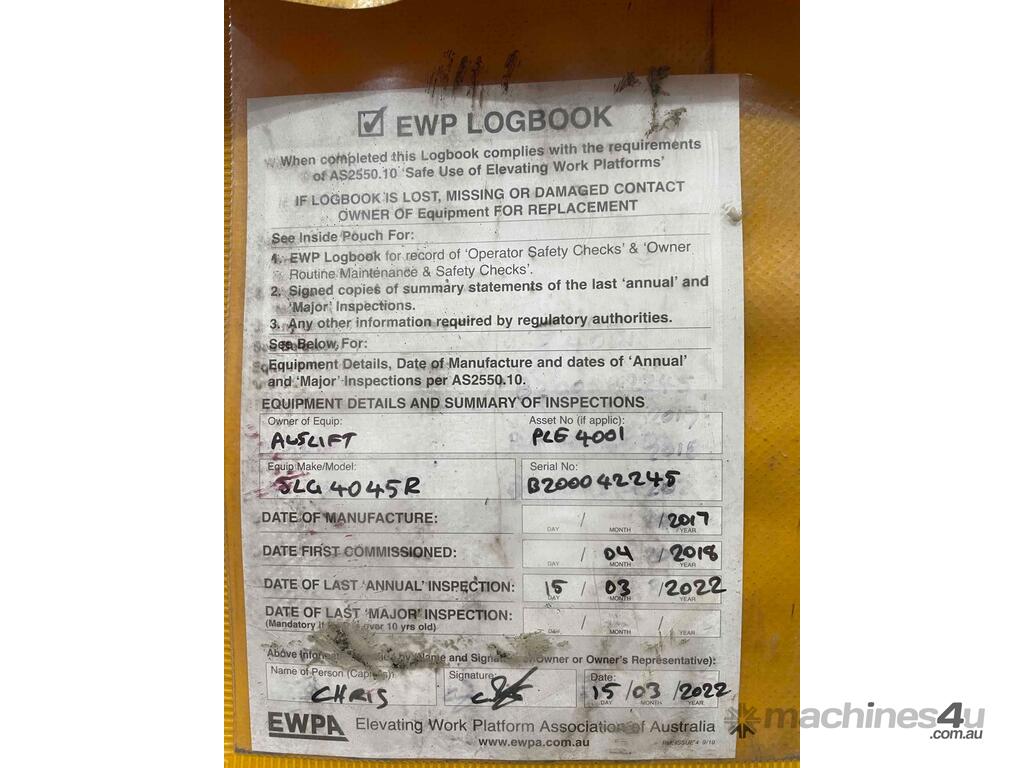 EWP LOGBOOK
When completed this Logbook complies with the requirements
of AS2550.10 'Safe Use of Elevating Work Platforms'
IF LOGBOOK IS LOST, MISSING OR DAMAGED CONTACT
OWNER OF Equipment FOR REPLACEMENT
See Inside Pouch For:
1. EWP Logbook for record of 'Operator Safety Checks' & 'Owner
Routine Maintenance & Safety Checks'.
2. Signed copies of summary statements of the last 'annual' and
'Major' Inspections.
3. Any other information required by regulatory authorities.
See Below For:
Equipment Details, Date of Manufacture and dates of 'Annual'
and 'Major' Inspections per AS2550.10.
EQUIPMENT DETAILS AND SUMMARY OF INSPECTIONS
Owner of Equip: Asset No (if applic):
AUSLIFT PLE 4001
Equip Make/Model: Serial No:
JLG 4045R B200042245
DATE OF MANUFACTURE: / / 2017
DAY MONTH YEAR
DATE FIRST COMMISSIONED: / 04 / 2018
DAY MONTH YEAR
DATE OF LAST 'ANNUAL' INSPECTION: 15 / 03 / 2022
DAY MONTH YEAR
DATE OF LAST 'MAJOR' INSPECTION: / /
(Mandatory over 10 yrs old) DAY MONTH YEAR
Above by (Name and Owner or Owner's Representative):
Name of Person Signature: Date:
CHRIS 15 / 03 / 2022
DAY MONTH YEAR
EWPA Elevating Work Platform Association of Australia
www.ewpa.com.au
machines4u
.com.au